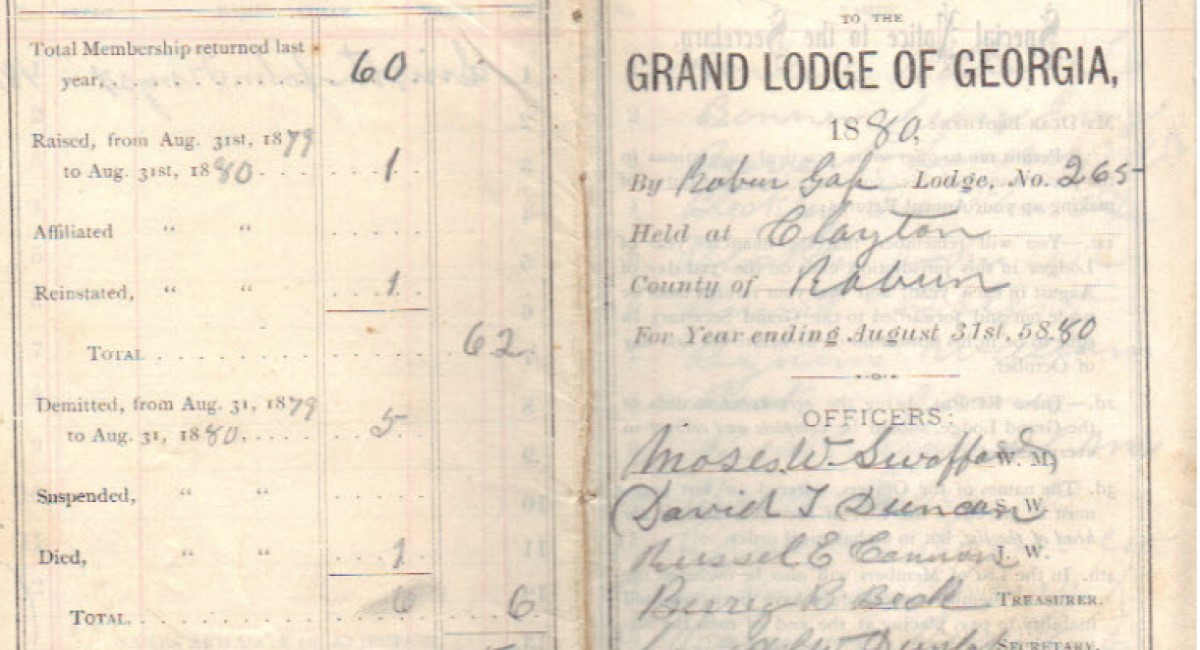 Total Membership returned last
year, . . . . . . 60
Raised, from Aug. 31st, 1879
to Aug. 31st, 1880 . . . . . . 1
Affiliated " "
Reinstated, " " . . . 1
TOTAL . . . . . . . . . . . . . 62
Demitted, from Aug. 31, 1879
to Aug. 31, 1880, . . . . . . 5
Suspended, " "
Died, " " . . . 1
TOTAL. . . . . . . . 6 . . . 6
TO THE
GRAND LODGE OF GEORGIA,
1880,
By Rabun Gap Lodge, No. 265
Held at Clayton
County of Rabun
For Year ending August 31st, 58.80
OFFICERS:
Moses W. Swafford W. M.
David T Duncan S. W.
Russel E Cannon J. W.
Berry Beck TREASURER.
SECRETARY.